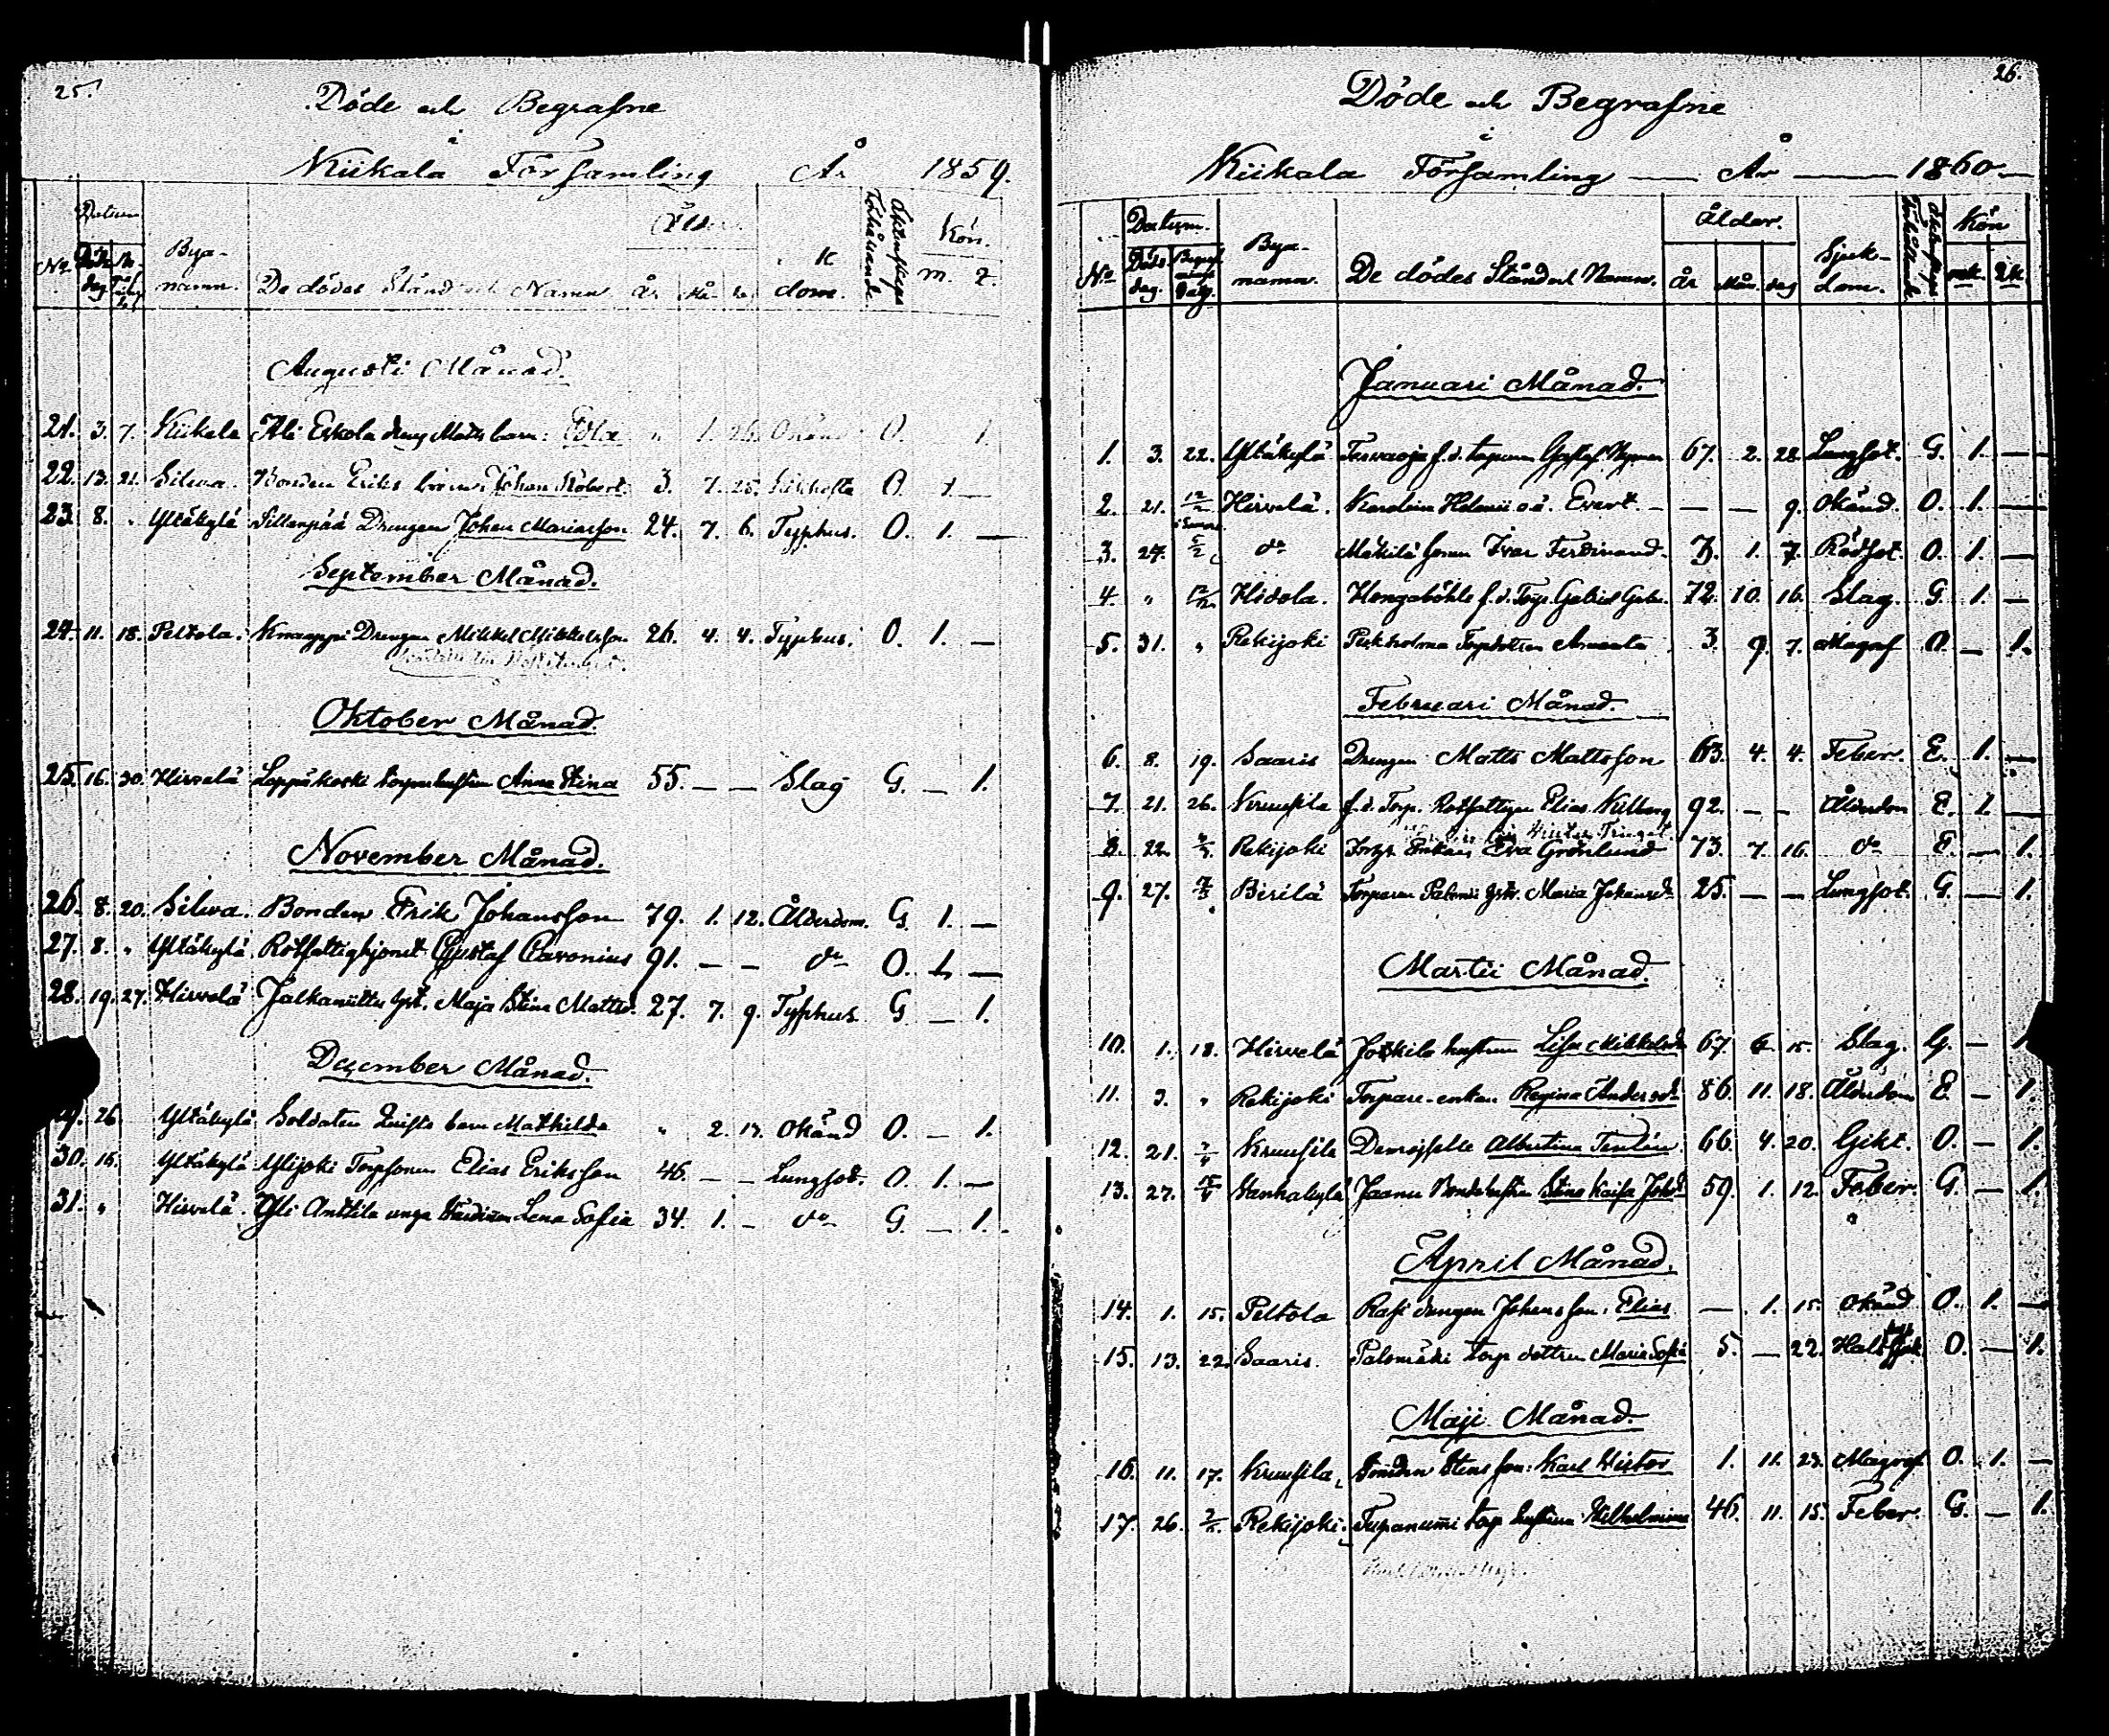 25.
Döde och Begrafne
i
Kiikala Församling År 1859.
No Datum Döds dag Bya-namn. De dödes Stånd och Namn. år Må- dom. Kön. m. q.
Augusti Månad.
21. 3. 7. Kiikala Ali Eskola dreng Matts barn: Edla " 1. 26. Okänd O. 1.
22. 13. 21. Silwa. Bonden Eriks barn: Johan Robert. 3. 7. 25. O. 1. —
23. 8. " Yltäkylä Sillanpää Drengen Johan Mariasson 24. 7. 6. Typhus. O. 1. —
September Månad.
24. 11. 18. Peltola. Knaappi Drengen Mikkel Mikkelsson 26. 4. 4. Typhus. O. 1. —
Oktober Månad.
25. 16. 30. Hirvelä Leppäkoski torparhustrun Anna Stina 55. — — Slag G. — 1.
November Månad.
26. 8. 20. Silwa. Bonden Erik Johansson 79. 1. 12. Ålderdom. G. 1. —
27. 8. " Yltäkylä Rotfattighjonet Gustaf Pavonius 91. — — do O. 1. —
28. 19. 27. Hirvelä Jalkaniittu hst. Maja Stina Mattsd. 27. 7. 9. Typhus G — 1.
December Månad.
26. Yltäkylä Soldaten barn Mathilda " 2. 17. Okänd O. — 1.
30. 15. Yltäkylä Ylijoki Torpsonen Elias Eriksson 46. — — Lungsot. O. 1. —
31. " Hirvelä. Yli Anttila unga Lena Sofia 34. 1. — do G. — 1.
26.
Döde och Begrafne
i
Kiikala Församling — År — 1860 —
No Datum. Döds dag. Begrafnings dag. Bya-namn. De dödes Stånd och Namn. Ålder. år Mån. dag Sjuk-dom. Kön mk. qk.
Januari Månad.
1. 3. 22. Yltäkylä Tervaoja f.d. torparen Gustaf Nyman 67. 2. 28. Lungsot. G. 1. —
2. 21. 12/2 Hirvelä. Karolina Helenii o.ä. Evert. — — — 9. Okänd. O. 1. —
3. 27. 5/2 do Mäkilä sonen Ivar Ferdinand. 3. 1. 7. Rödsot. O. 1. —
4. " 12/2 Hidola. f.d. Torp. Gabriel 72. 10. 16. Slag. G. 1. —
5. 31. " Rekijoki Torpdottren Amanda 3. 9. 7. Magref O. — 1.
Februari Månad.
6. 8. 19. Saaris Drengen Matts Mattsson 63. 4. 4. Feber. E. 1. —
7. 21. 26. Kruusila f.d. Torp. Rotfattigen Elias Kilberg 92. — — Ålderdom E. 1. —
8. 22. Rekijoki Torp. Enkan Eva Grönlund 73. 7. 16. do E. — 1.
9. 27. Birilä Torparen hst. Maria Johansd. 25. — — Lungsot. G. — 1.
Martii Månad.
10. 1. 18. Hirvelä hustrun Lisa Mikkelsd. 67. 6. 15. Slag. G. — 1.
11. 3. " Rekijoki Torpare-enkan Regina Andersd. 86. 11. 18. Ålderdom E. — 1.
12. 21. Kruusila Demoiselle Albertina 66. 4. 20. Gikt. O. — 1.
13. 27. 15/4 Hanhakylä Jaanu Bondehustrun Stina Kaisa Johd. 59. 1. 12. Feber. G. — 1.
April Månad.
14. 1. 15. Peltola drengen Johans son: Elias — 1. 15. Okänd O. 1. —
15. 13. 22. Saaris. Palomäki torp dottren Maria Sofia 5. — 22. O. — 1.
Maji Månad.
16. 11. 17. Kruusila Smeden Stens son: Karl Victor 1. 11. 23. Magref O. 1. —
17. 26. Rekijoki. torp hustrun Wilhelmina 46. 11. 15. Feber. G. — 1.